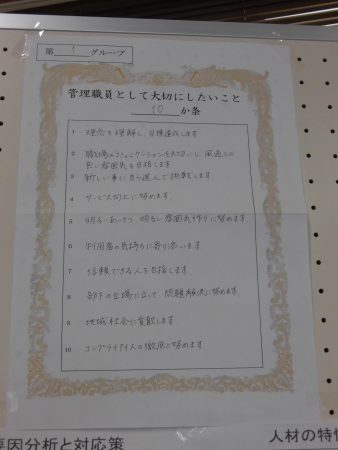 第 1 グループ
管理職員として大切にしたいこと
10 か条
1 理念を理解し、目標達成します
2 職場のコミュニケーションを大切にし、風通しの
良い雰囲気を目指します
3 新しい事に自ら進んで挑戦します
4 サービス向上に努めます。
5 明るいあいさつ、明るい雰囲気作りに努めます。
6 利用者の気持ちに寄り添います。
7 信頼できる人を目指します。
8 部下の立場に立って問題解決に努めます。
9 地域社会に貢献します
10 コンプライアンスの徹底に努めます。
要因分析と対応策
人材の特性